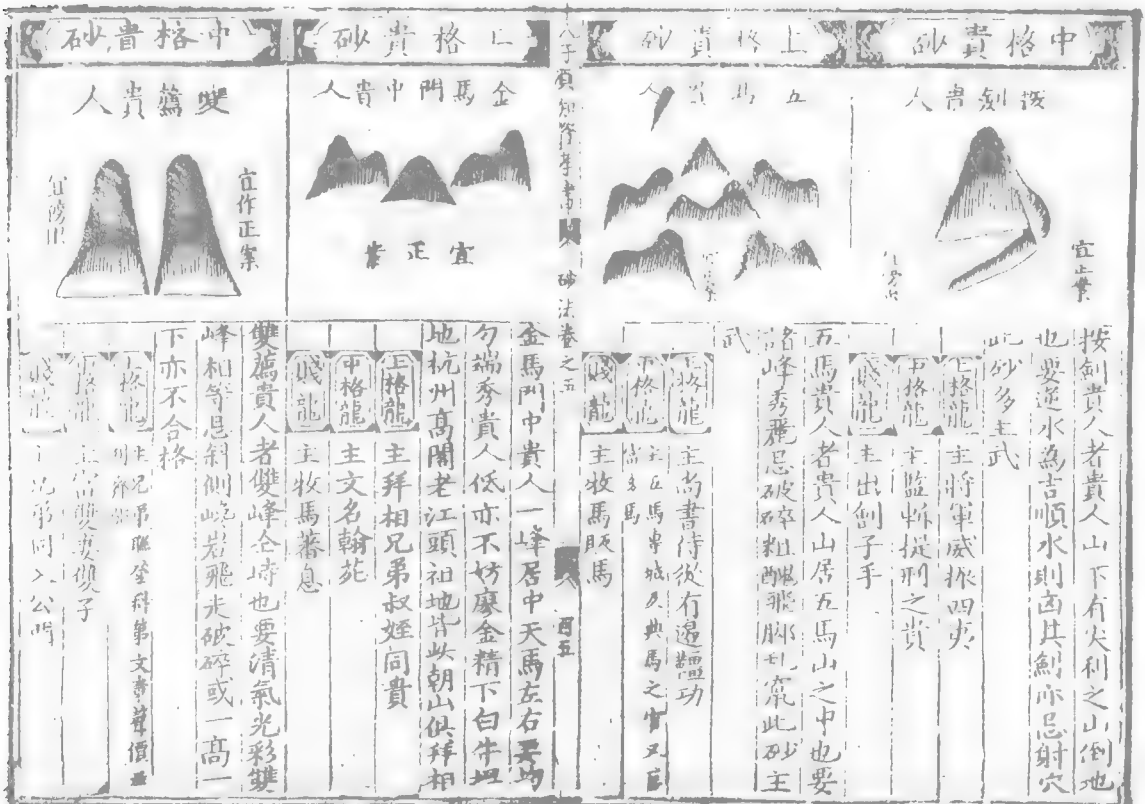 中格貴砂
按劍貴人
宜正案
按劍貴人者貴人山下有尖利之山倒地
也要逆水為吉順水則凶其劍亦忌射穴
此砂多主武
上格龍 主將軍威振四夷
中格龍 主監斬提刑之貴
賤龍 主出劊子手
上格貴砂
五馬貴人
五馬貴人者貴人山居五馬山之中也要
諸峰秀麗忌破碎粗醜飛腳乱竄此砂主
武
上格龍 主尚書侍從有邊疆功
中格龍 主五馬專城及典馬之官又主富多馬
賤龍 主牧馬販馬
人子須知
砂法卷之五
八
酉五
上格貴砂
金馬門中貴人
宜正案
金馬門中貴人一峰居中天馬左右要均
勻端秀貴人低亦不妨廖金精下白牛坦
地杭州高閣老江頭祖地皆此朝山俱拜相
上格龍 主拜相兄弟叔姪同貴
中格龍 主文名翰苑
賤龍 主牧馬蕃息
中格貴砂
雙薦貴人
宜作正案
雙薦貴人者雙峰仝峙也要清氣光彩雙
峰相等忌斜側巉岩飛走破碎或一高一
下亦不合格
上格龍 主兄弟聯登科第文章聲價
中格龍 雙妻雙子
賤龍 主兄弟同入公門